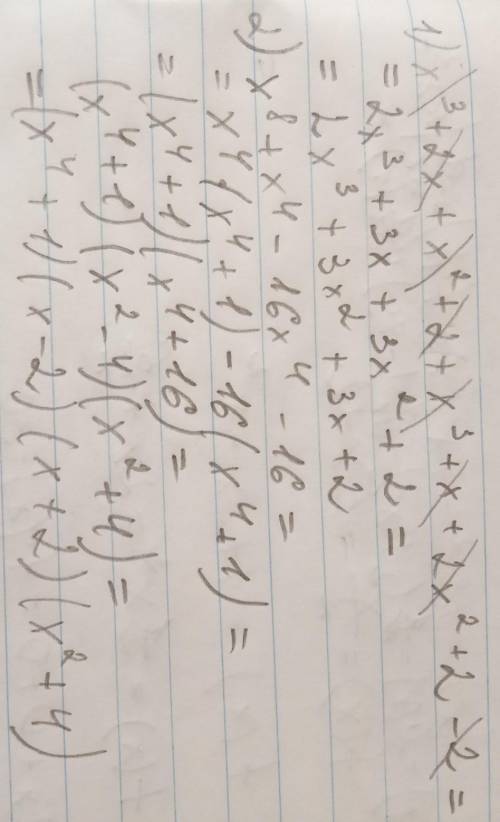 1) x³ + 2x + x² + 2 + x³ + x + 2x² + 2 - 2 =
= 2x³ + 3x + 3x² + 2 =
= 2x³ + 3x² + 3x + 2
2) x⁸ + x⁴ - 16x⁴ - 16 =
= x⁴(x⁴ + 1) - 16(x⁴ + 1) =
= (x⁴ + 1)(x⁴ + 16) =
(x⁴ + 1)(x² - 4)(x² + 4) =
= (x⁴ + 1)(x - 2)(x + 2)(x² + 4)